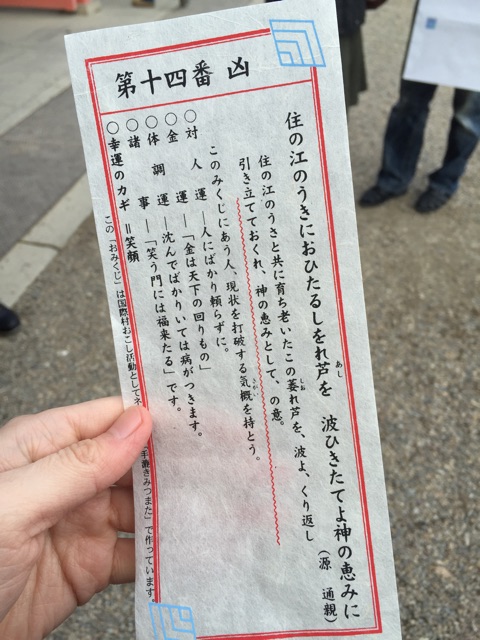 第十四番 凶
住の江のうきにおひたるしをれ芦を 波ひきたてよ神の恵みに
あし
(源 通親)
住の江のうさと共に育ち老いたこの萎れ芦を、波よ、くり返し
しお
引き立てておくれ、神の恵みとして、の意。
このみくじにあう人、現状を打破する気概を持とう。
きがい
○対人運―人にばかり頼らずに。
○金運―「金は天下の回りもの」
○体調運―沈んでばかりいては病がつきます。
○諸事―「笑う門には福来たる」です。
○幸運のカギ=笑顔
この「おみくじ」は国際村おこし活動としてネ 「手漉きみつまた」で作っています。